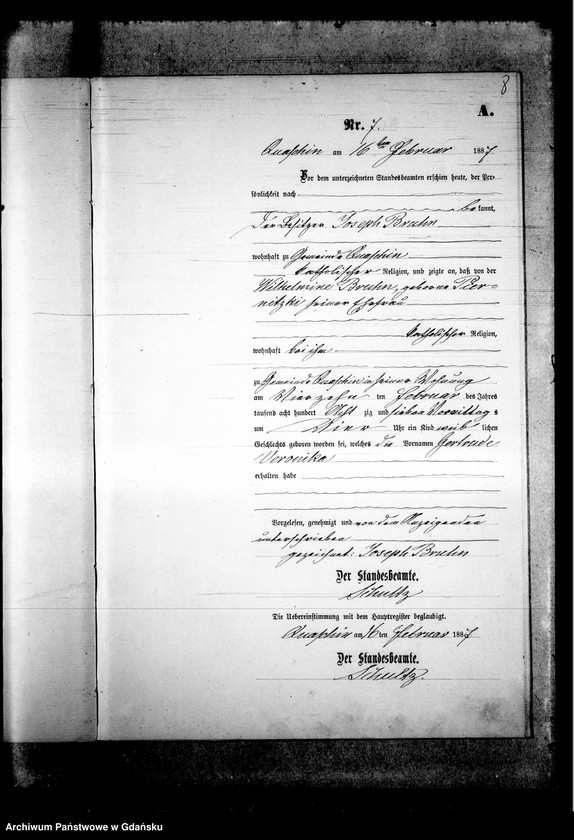 8
A.
Nr. 7.
Quaschin am 16ten Februar 1887.
Vor dem unterzeichneten Standesbeamten erschien heute, der Per-
sönlichkeit nach
bekannt,
Der Besitzer Joseph Bruhn
wohnhaft zu Gemeinde Quaschin
katholischer Religion, und zeigte an, daß von der
Wilhelmine Bruhn, geborne
seiner Ehefrau
katholischer Religion,
wohnhaft bei ihm
zu Gemeinde Quaschin in seiner Wohnung
am Vierzehn ten Februar des Jahres
tausend acht hundert Acht zig und sieben Vormittags
um Vier Uhr ein Kind weib lichen
Geschlechts geboren worden sei, welches die Vornamen Gertrude
Veronika
erhalten habe
Vorgelesen, genehmigt und von dem Anzeigenden
unterschrieben
gezeichnet: Joseph Bruhn
Der Standesbeamte.
Schultz
Die Uebereinstimmung mit dem Hauptregister beglaubigt.
Quaschin am 16 ten Februar 1887
Der Standesbeamte.
Schultz.
Archiwum Państwowe w Gdańsku